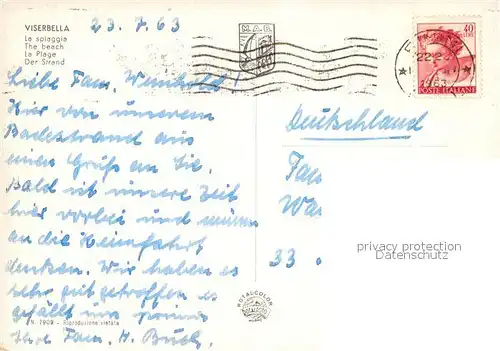 VISERBELLA
La spiaggia
The beach
La Plage
Der Strand
23.7.63
M.A.B.
40
POSTE ITALIANE
22
1963
Liebe Fam. Weinhold!
Hier von unserem
Badestrand aus
einen Gruß an Sie.
Bald ist unsere Zeit
hier vorbei und müssen
an die Heimfahrt
denken. Wir haben es
sehr gut getroffen es
gefällt uns prima
Ihre Fam. H. Buch.
Deutschland
Fam
Wa
33
privacy protection
oldthing.de
N. 1909 - Riproduzione vietata
ROTALCOLOR
ROTALFOTO
MILANO